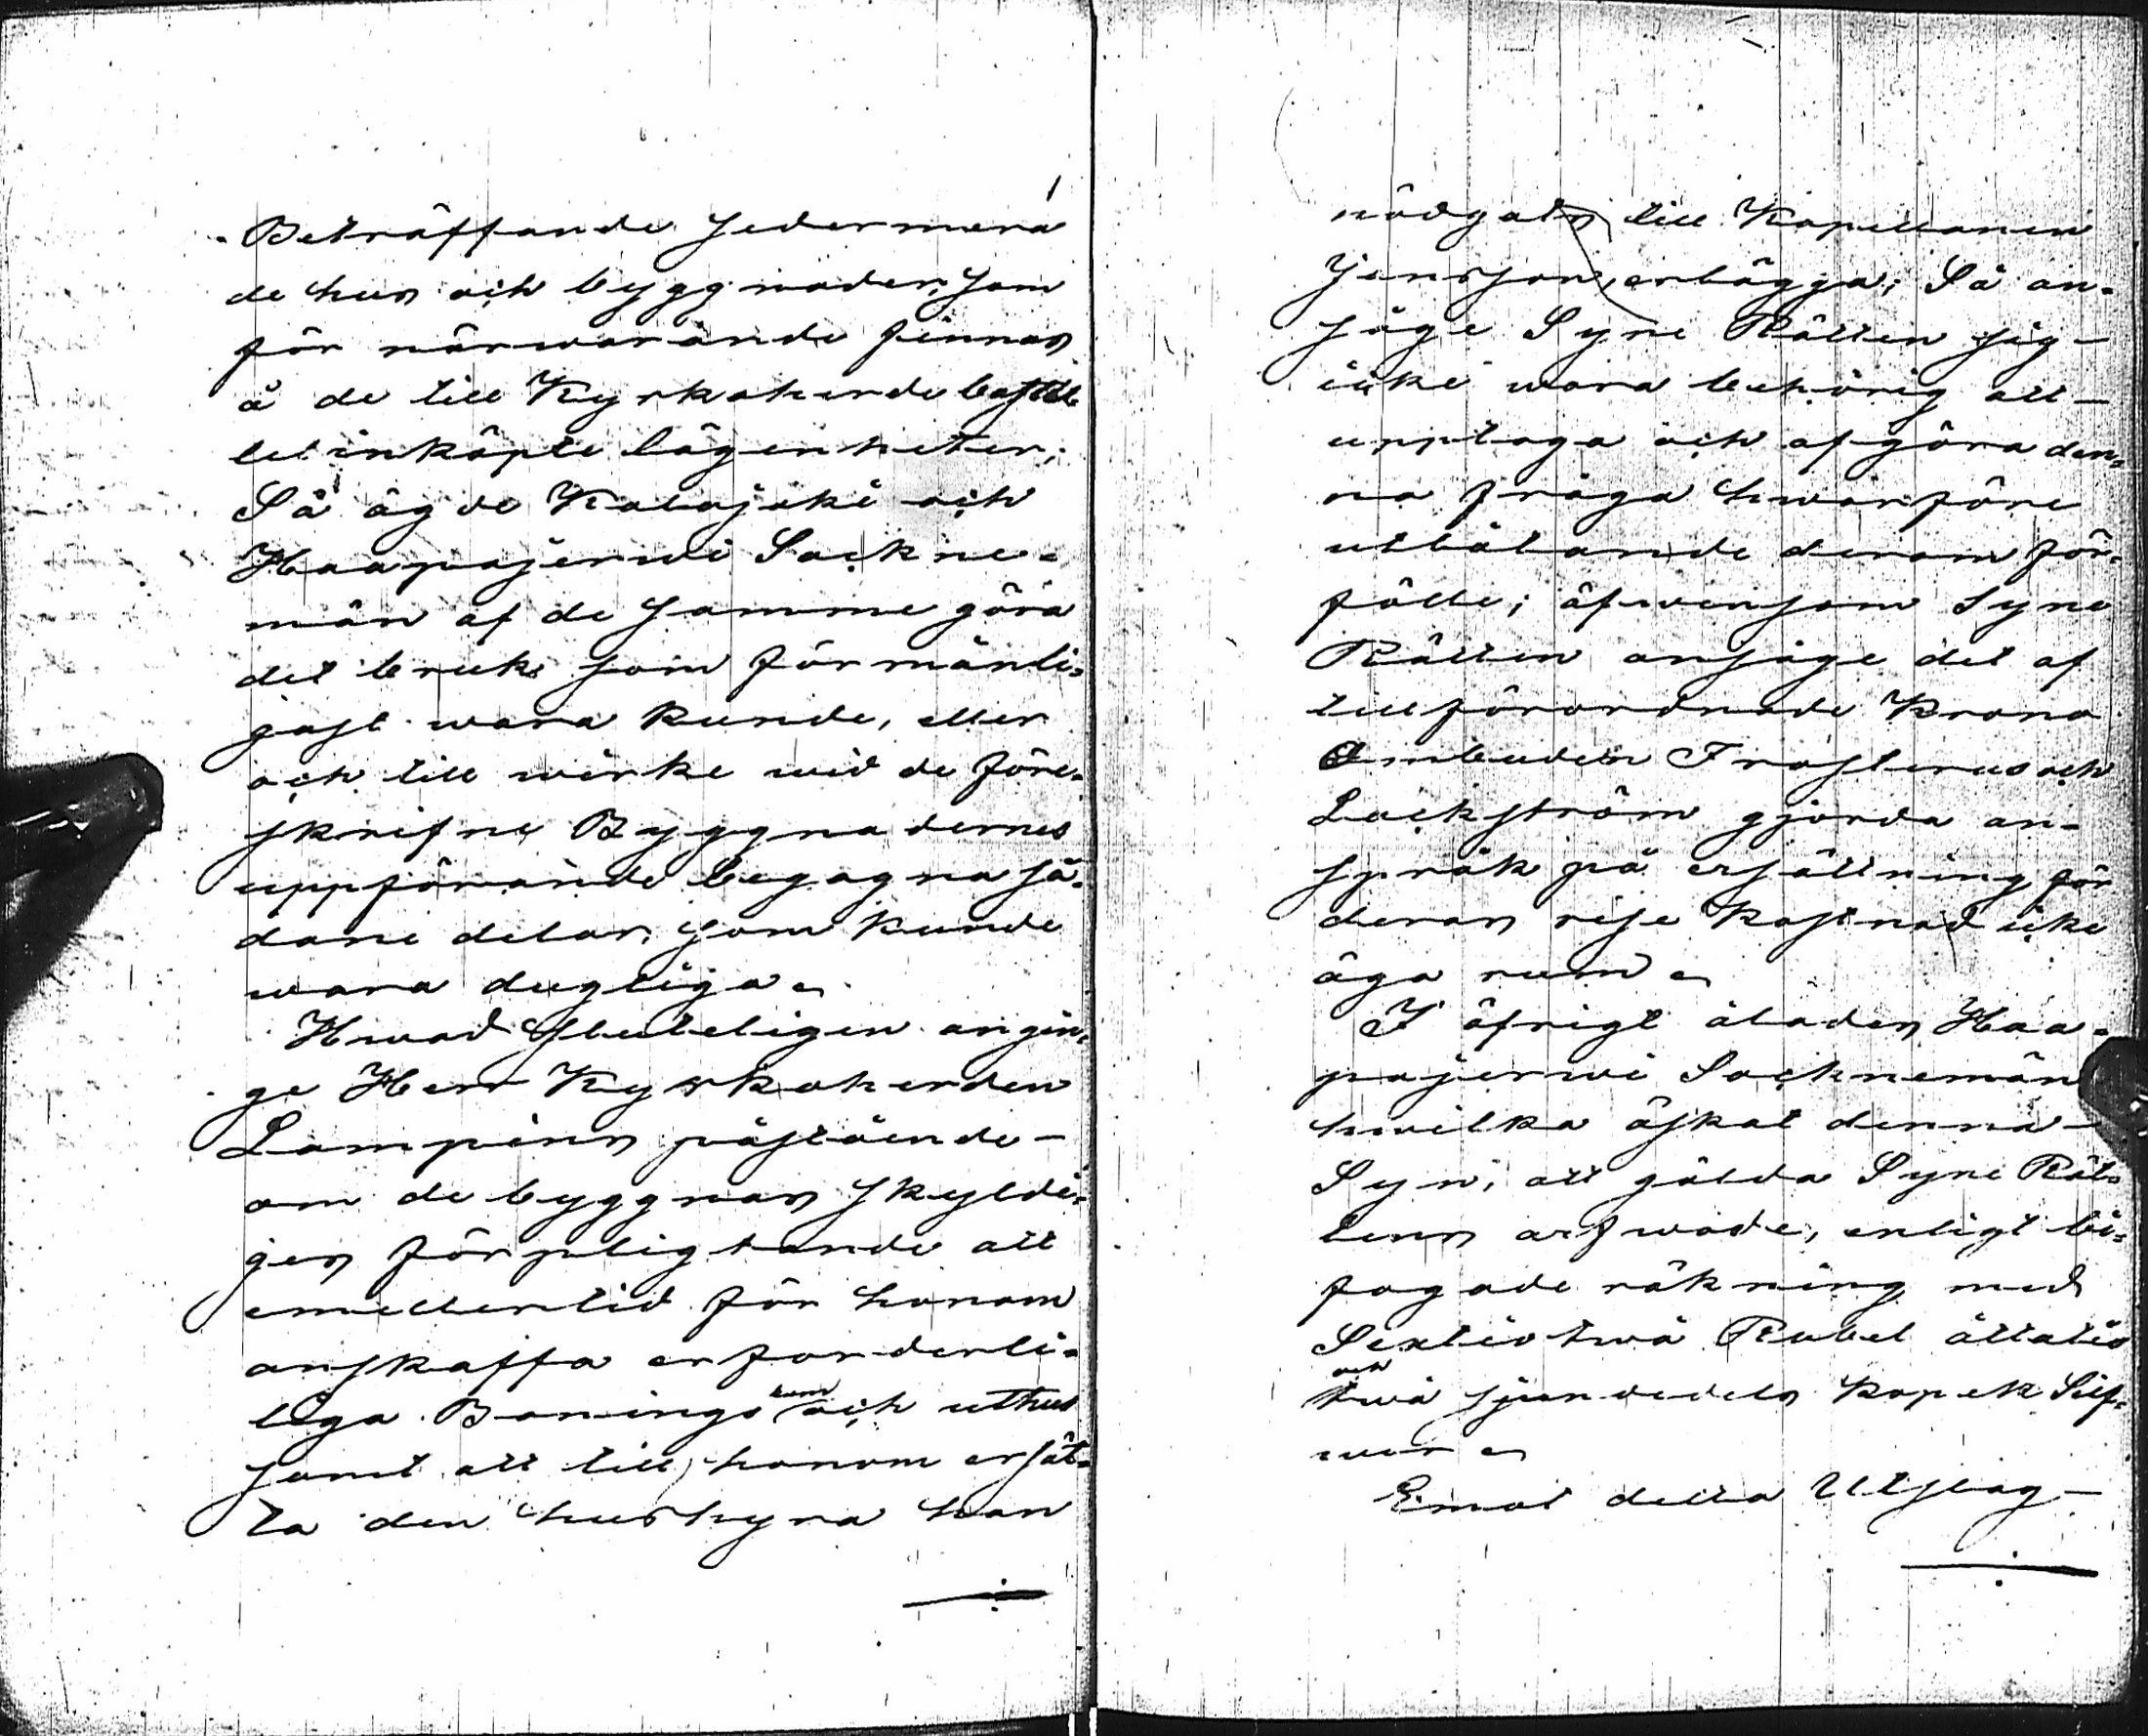 Beträffande sedermera
de hus och byggnader, som
för närwarande finnas
å de till Kyrkoherde bostäl
let inköpte lägenheter;
Så ägde Kalajoki och
Haapajerwi Sockne-
män af de samme göra
det bruk som förmånli-
gast wara kunde, eller
och till wirke wid de före-
skrifne Byggnadernes
uppförande begagna så-
dane delar, som kunde
wara dugliga.
Hwad sluteligen angin-
ge Herr Kyrkoherden
Lampinns påstående -
om de byggnas skyldi-
ges förpligtande att
emellertid för honom
anskaffa erforderli-
liga Bonings rum och uthus
samt att till honom ersät-
ta den hushyra han
nödgats till Kapellanen
Jansson, erlägga; Så an-
såge Syne Rätten sig -
icke wara behörig att -
upptaga och afgöra den-
na fråga hwarföre
utlåtande derom för-
fölle; äfwensom Syne
Rätten ansåge det af
tillförordnade Krono
Ombuden Frosterus och
Lackström gjorda an-
språk på ersättning för
deras rese kostnad icke
äga rum.
I öfrigt ålades Haa-
pajerwi Socknemän
hwilka äskat denna -
Syn, att gälda Syne Rät-
tens arfwode, enligt bi-
fogade räkning med
Sextiotwå Rubel åttatio
och
twå sjundedels kopek Silf-
wer.
Emot detta Utslag -